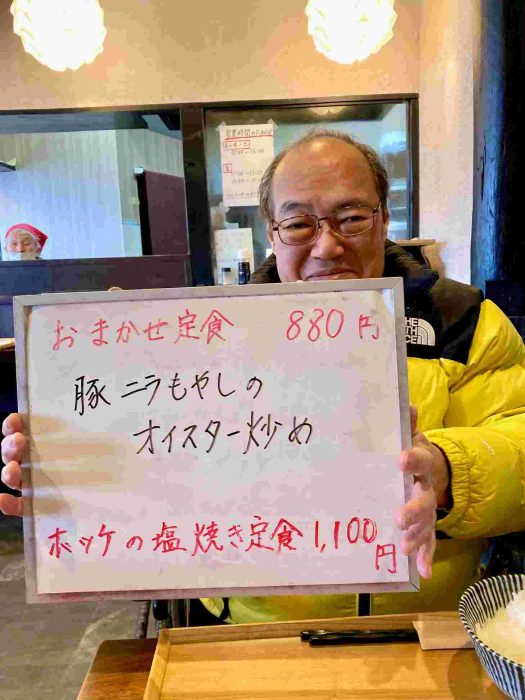 営業時間のお知らせ
おまかせ定食 880円
豚ニラもやしの
オイスター炒め
ホッケの塩焼き定食 1,100円
THE
NORTH
FACE